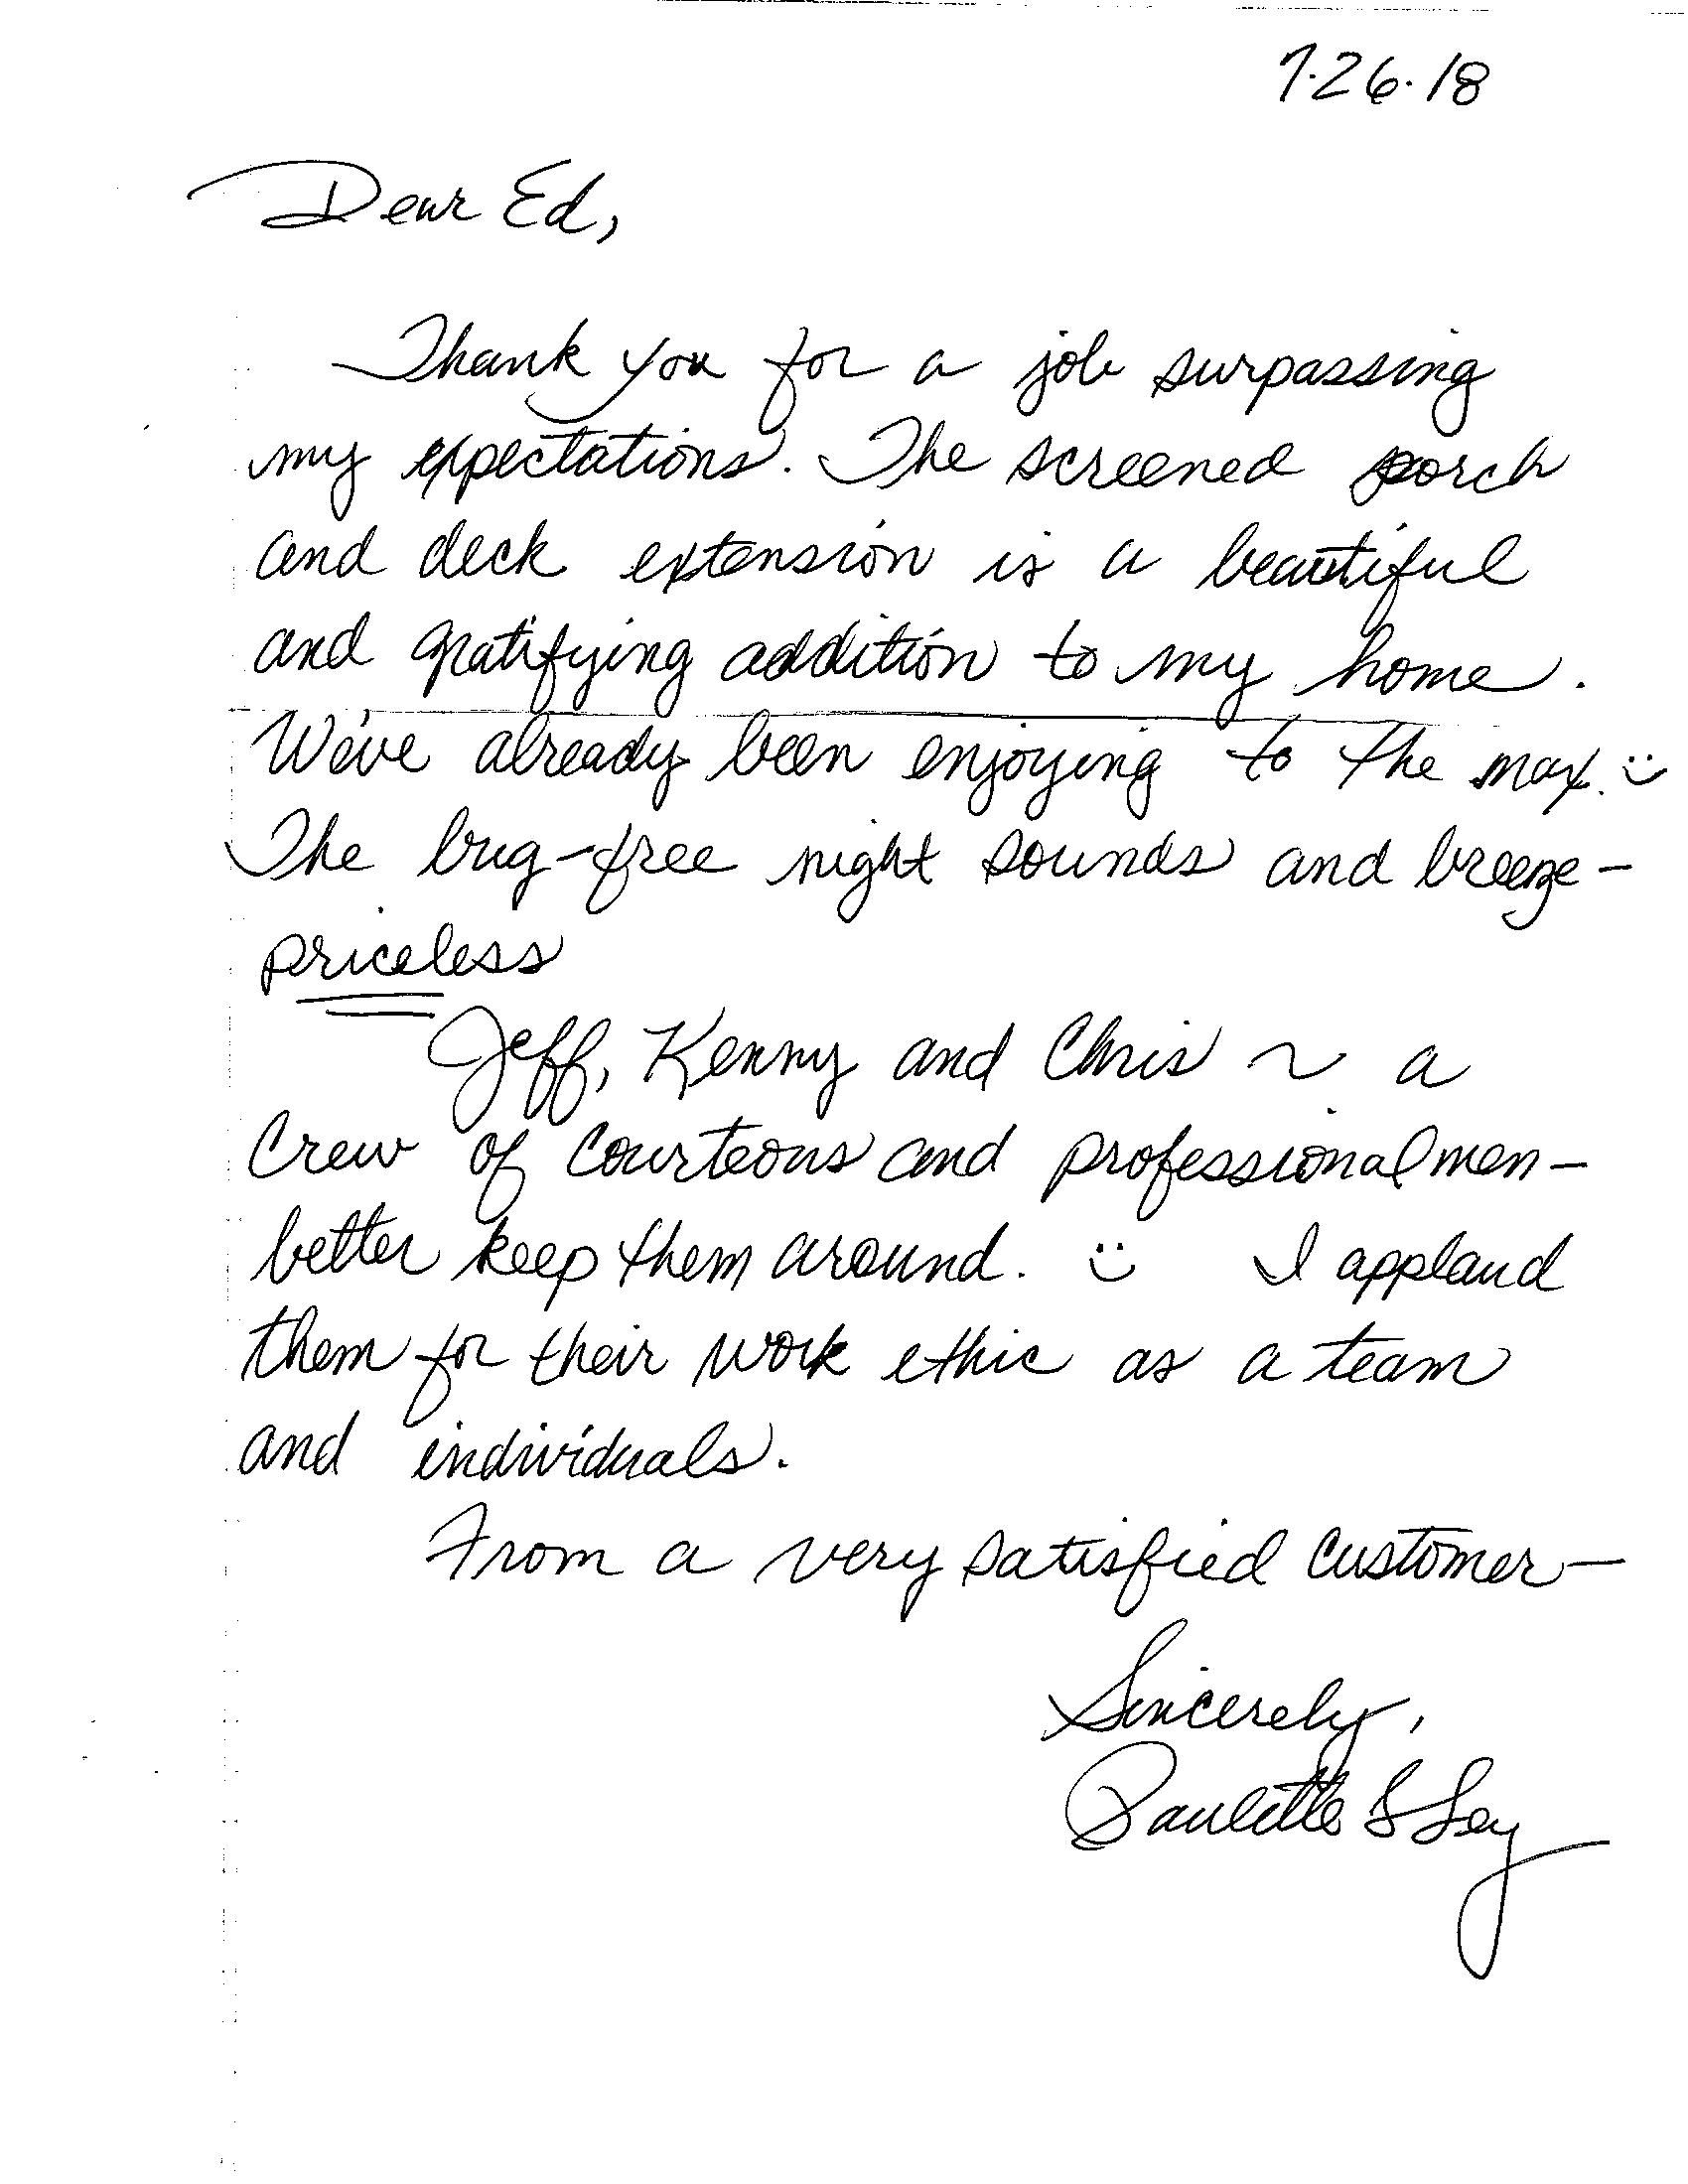 7.26.18
Dear Ed,
Thank you for a job surpassing
my expectations. The screened porch
and deck extension is a beautiful
and gratifying addition to my home.
We've already been enjoying to the max. :)
The bug-free night sounds and breeze -
priceless
Jeff, Kenny and Chris ~ a
crew of courteous and professional men -
better keep them around. :) I applaud
them for their work ethic as a team
and individuals.
From a very satisfied customer -
Sincerely,
Paulette S